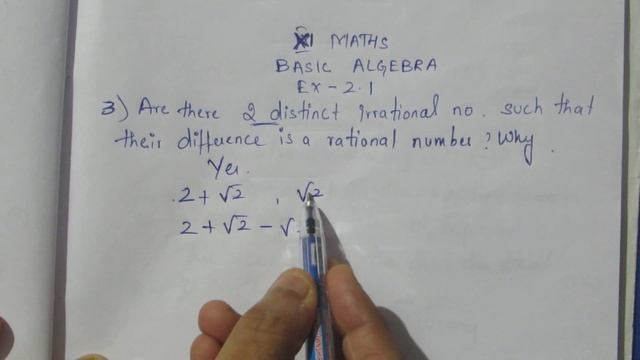 XI MATHS
BASIC ALGEBRA
EX - 2.1
3) Are there 2 distinct irrational no. such that
their difference is a rational number? Why.
Yes.
2 + √2 , √2
2 + √2 - √